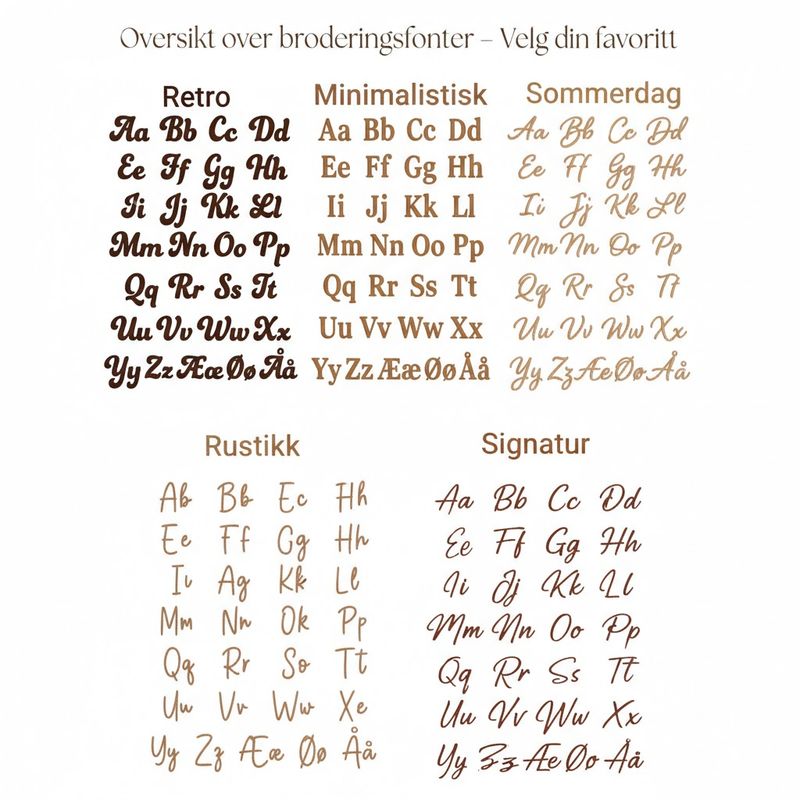 Oversikt over broderingsfonter – Velg din favoritt
Retro
Aa Bb Cc Dd
Ee Ff Gg Hh
Ii Jj Kk Ll
Mm Nn Oo Pp
Qq Rr Ss Tt
Uu Vv Ww Xx
Yy Zz Ææ Øø Åå
Minimalistisk
Aa Bb Cc Dd
Ee Ff Gg Hh
Ii Jj Kk Ll
Mm Nn Oo Pp
Qq Rr Ss Tt
Uu Vv Ww Xx
Yy Zz Ææ Øø Åå
Sommerdag
Aa Bb Cc Dd
Ee Ff Gg Hh
Ii Jj Kk Ll
Mm Nn Oo Pp
Qq Rr Ss Tt
Uu Vv Ww Xx
Yy Zz Æe Øo Åå
Rustikk
Ab Bb Ec Hh
Ee Ff Gg Hh
Ii Ag Kk Ll
Mm Nn Ok Pp
Qq Rr So Tt
Uu Vv Ww Xe
Yy Zz Ææ Øø Åå
Signatur
Aa Bb Cc Dd
Ee Ff Gg Hh
Ii Jj Kk Ll
Mm Nn Oo Pp
Qq Rr Ss Tt
Uu Vv Ww Xx
Yy Zz Æe Øo Åå